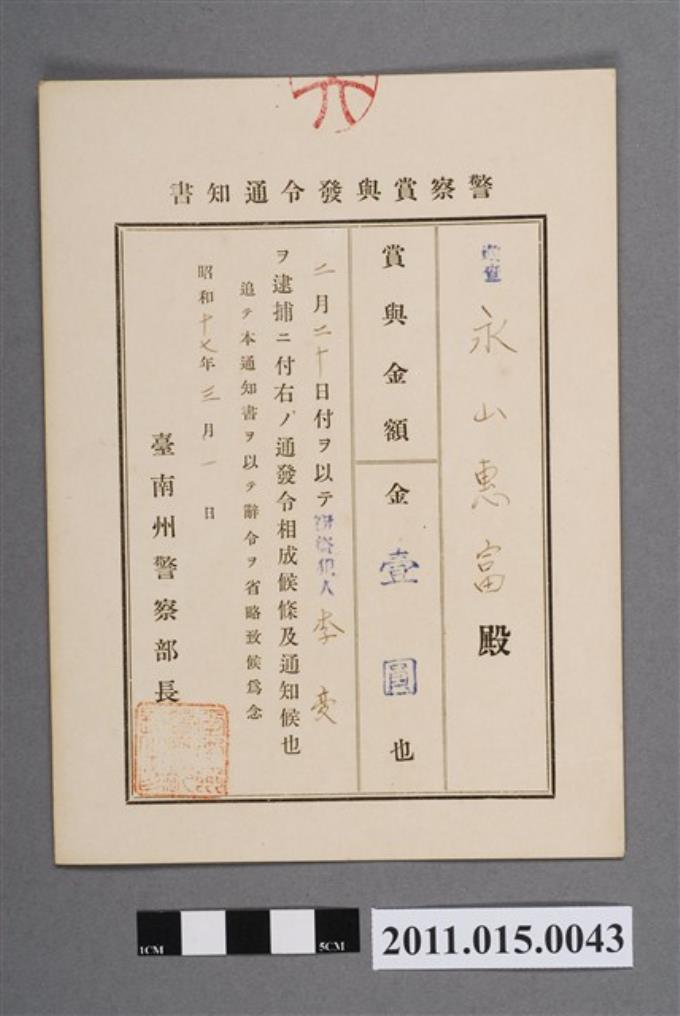 警察賞與發令通知書
巡查 永山惠富殿
賞與金額 金壹圓也
二月二十日付ヲ以テ 犯人李变
ヲ逮捕ニ付右ノ通發令相成候條及通知候也
追テ本通知書ヲ以テ辭令ヲ省略致候爲念
昭和十七年三月一日
臺南州警察部長
1CM
5CM
2011.015.0043